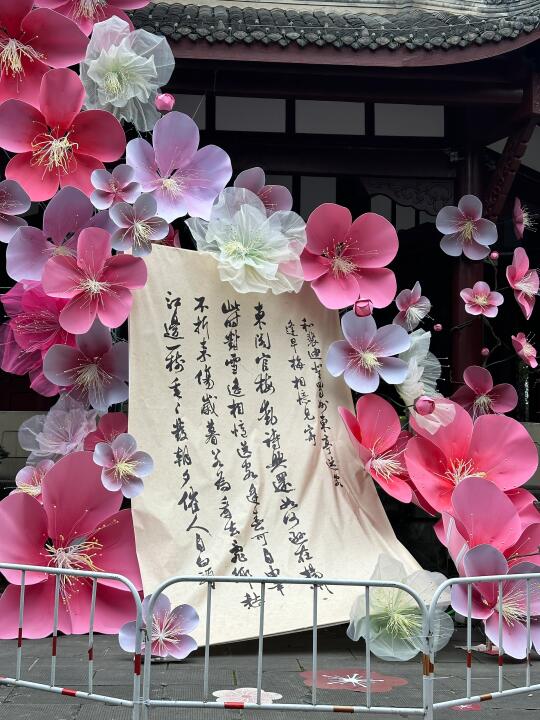 和裴迪登蜀州東亭送客
逢早梅相憶見寄
東閣官梅動詩興還如何遜在揚州
此時對雪遙相憶送客逢春可自由幸
不折來傷歲暮若為看去亂鄉愁
江邊一樹垂々發朝夕催人自白頭